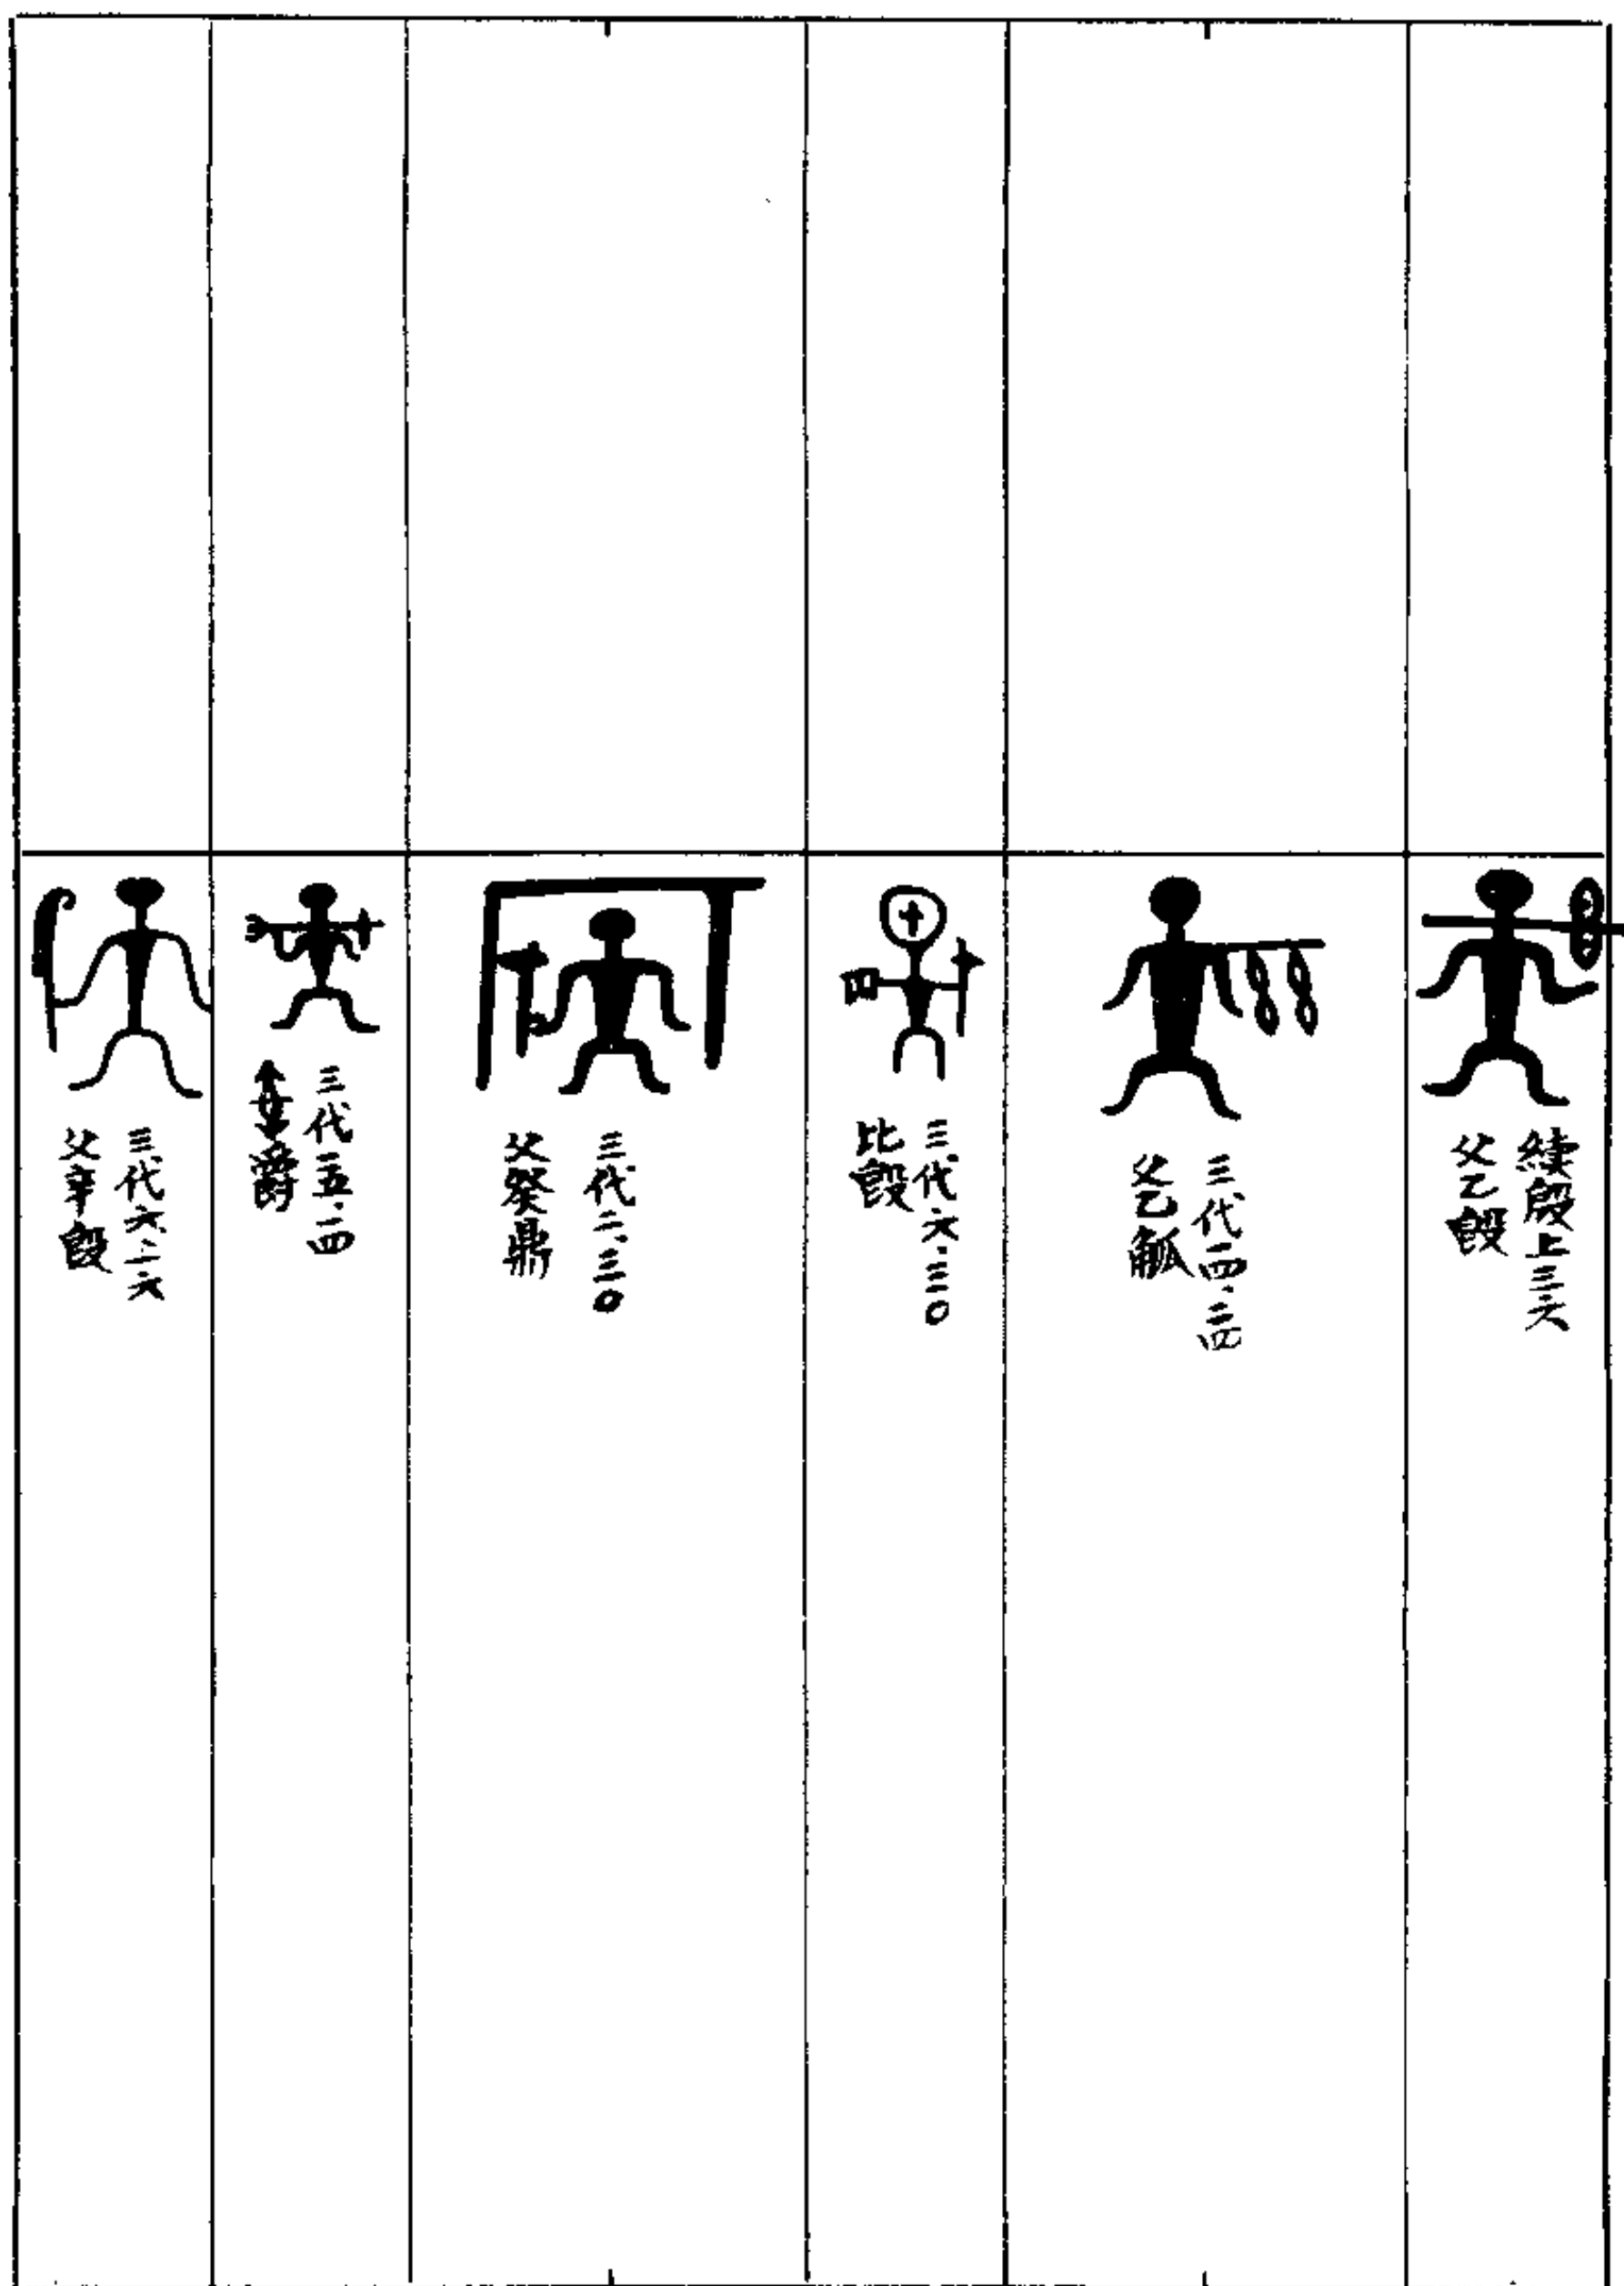 續殷上三六
父乙𣪘
三代一四
父乙觚
三代六·三〇
比𣪘
三代二·三〇
父癸鼎
三代一五·四
爵
三代六·一六
父辛𣪘